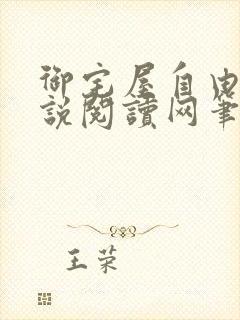 御宅屋自由
說閱讀网筆
王荣